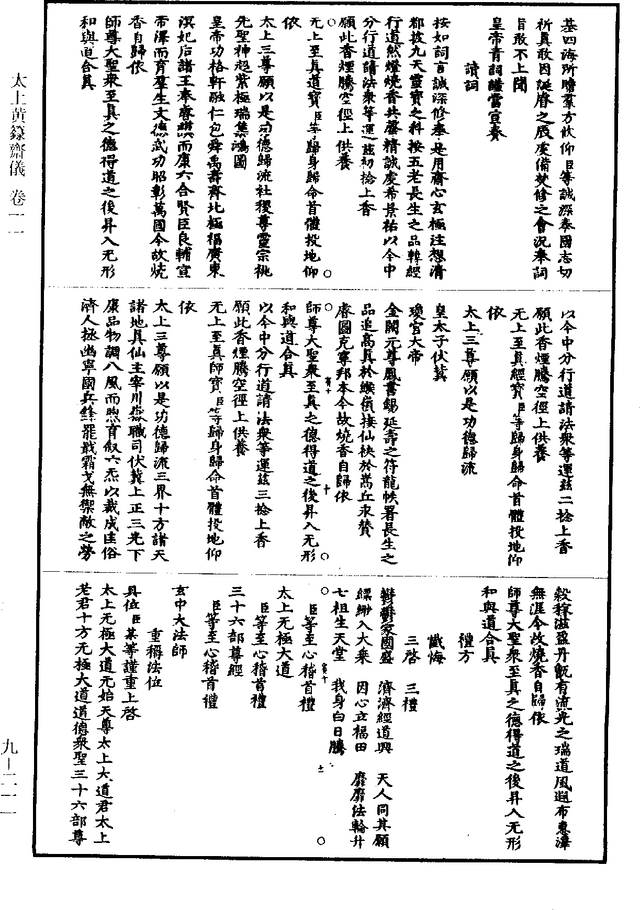 基四海所瞻羣方欽仰臣等誠深奉國志切
祈真敢因誕眷之辰虔備焚修之會況奉詞
旨敢不上聞
皇帝青詞謹當宣奏
讀詞
按如詞言誠深修奉是用齋心玄極注想清
都披九天靈寶之科按五老長生之品韓經
行道然燈燒香共磬精誠虔希景祐以今中
分行道請法衆等運茲初捻上香
願此香煙騰空徑上供養
无上至真道寶臣等歸身歸命首體投地仰
依
太上三尊願以是功德歸流社稷尊靈宗祧
先聖神超紫極瑞集鴻圖
皇帝功格軒融仁包舜禹壽齊北極福廣東
溟妃后諸王奉睿謨而康六合賢臣良輔宣
帝澤而育羣生文德武功昭彰萬國今故燒
香自歸依
師尊大聖衆至真之德得道之後昇入无形
和與道合真
以今中分行道請法衆等運茲二捻上香
願此香煙騰空徑上供養
无上至真經寶臣等歸身歸命首體投地仰
依
太上三尊願以是功德歸流
皇太子伏冀
瓊宮大帝
金闕元尊鳳書錫延壽之符龍帙署長生之
品追高真於緱嶺接仙袂於嵩丘永贊
睿圖克寧邦本今故燒香自歸依
師尊大聖衆至真之德得道之後昇入无形
和與道合真
以今中分行道請法衆等運茲三捻上香
願此香煙騰空徑上供養
无上至真師寶臣等歸身歸命首體投地仰
依
太上三尊願以是功德歸流三界十方諸天
諸地真仙主宰川嶽職司伏冀上正三光下
康品物調八風而煦育叙六炁以裁成匡俗
濟人拯幽寧國兵鋒罷戢霜戈無禦敵之勞
穀稼滋盈丹甑有流光之瑞道風遐布惠澤
無涯今故燒香自歸依
師尊大聖衆至真之德得道之後昇入无形
和與道合真
禮方
懺悔
三啓　三禮
鬱鬱家國盛　濟濟經道興　天人同其願
縹緲入大乘　因心立福田　靡靡法輪升
七祖生天堂　我身白日騰
臣等至心稽首禮
太上无極大道
臣等至心稽首禮
三十六部尊經
臣等至心稽首禮
玄中大法師
重稱法位
具位臣某等謹重上啓
太上无極大道元始天尊太上大道君太上
老君十方无極大道道德衆聖三十六部尊
太上黃籙齋儀　卷一一
九－二一一